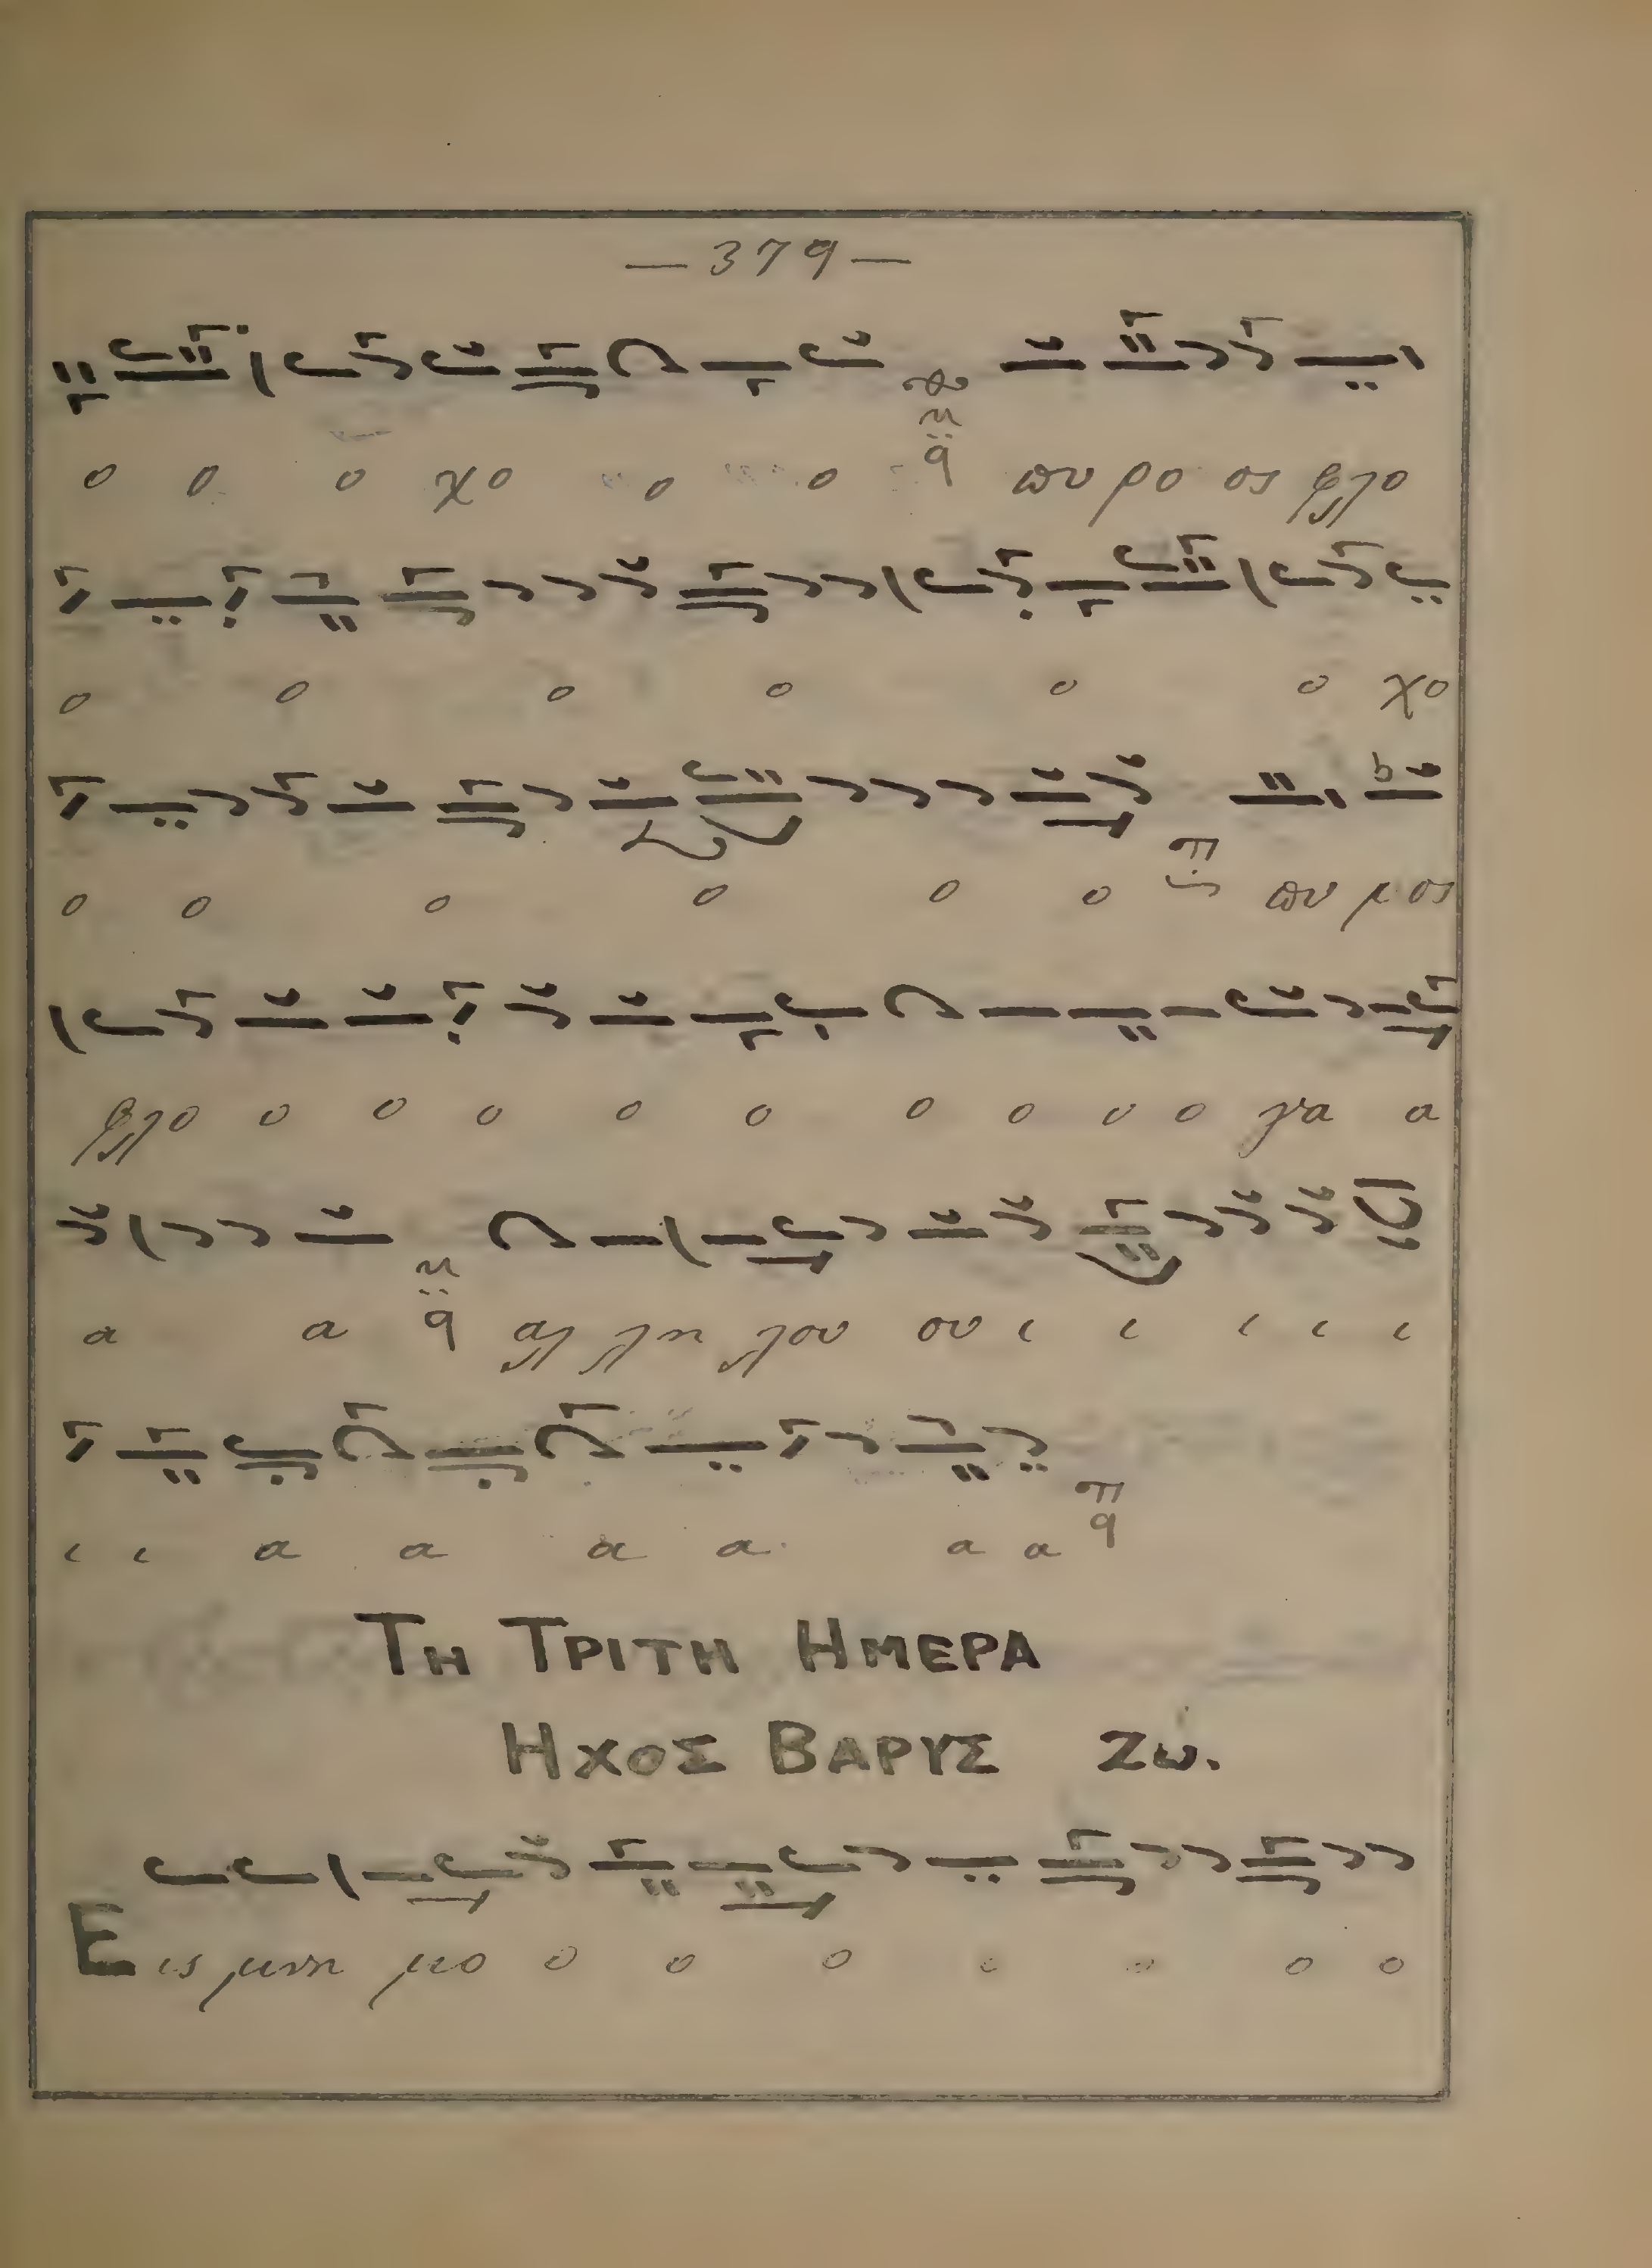 — 379 —
ο ο ο χο ο ο πυ ρο ος φλο
ο ο ο ο ο ο χο
ο ο ο ο ο ο πυ ρ ος
φλο ο ο ο ο ο ο ο ο ο γα α
α α αλ λη λου ου ι ι ι ι ι
ι ι α α α α α α
ΤΗ ΤΡΙΤΗ ΗΜΕΡΑ
ΗΧΟΣ ΒΑΡΥΣ Ζω.
Ε ις μνη μο ο ο ο ο ο